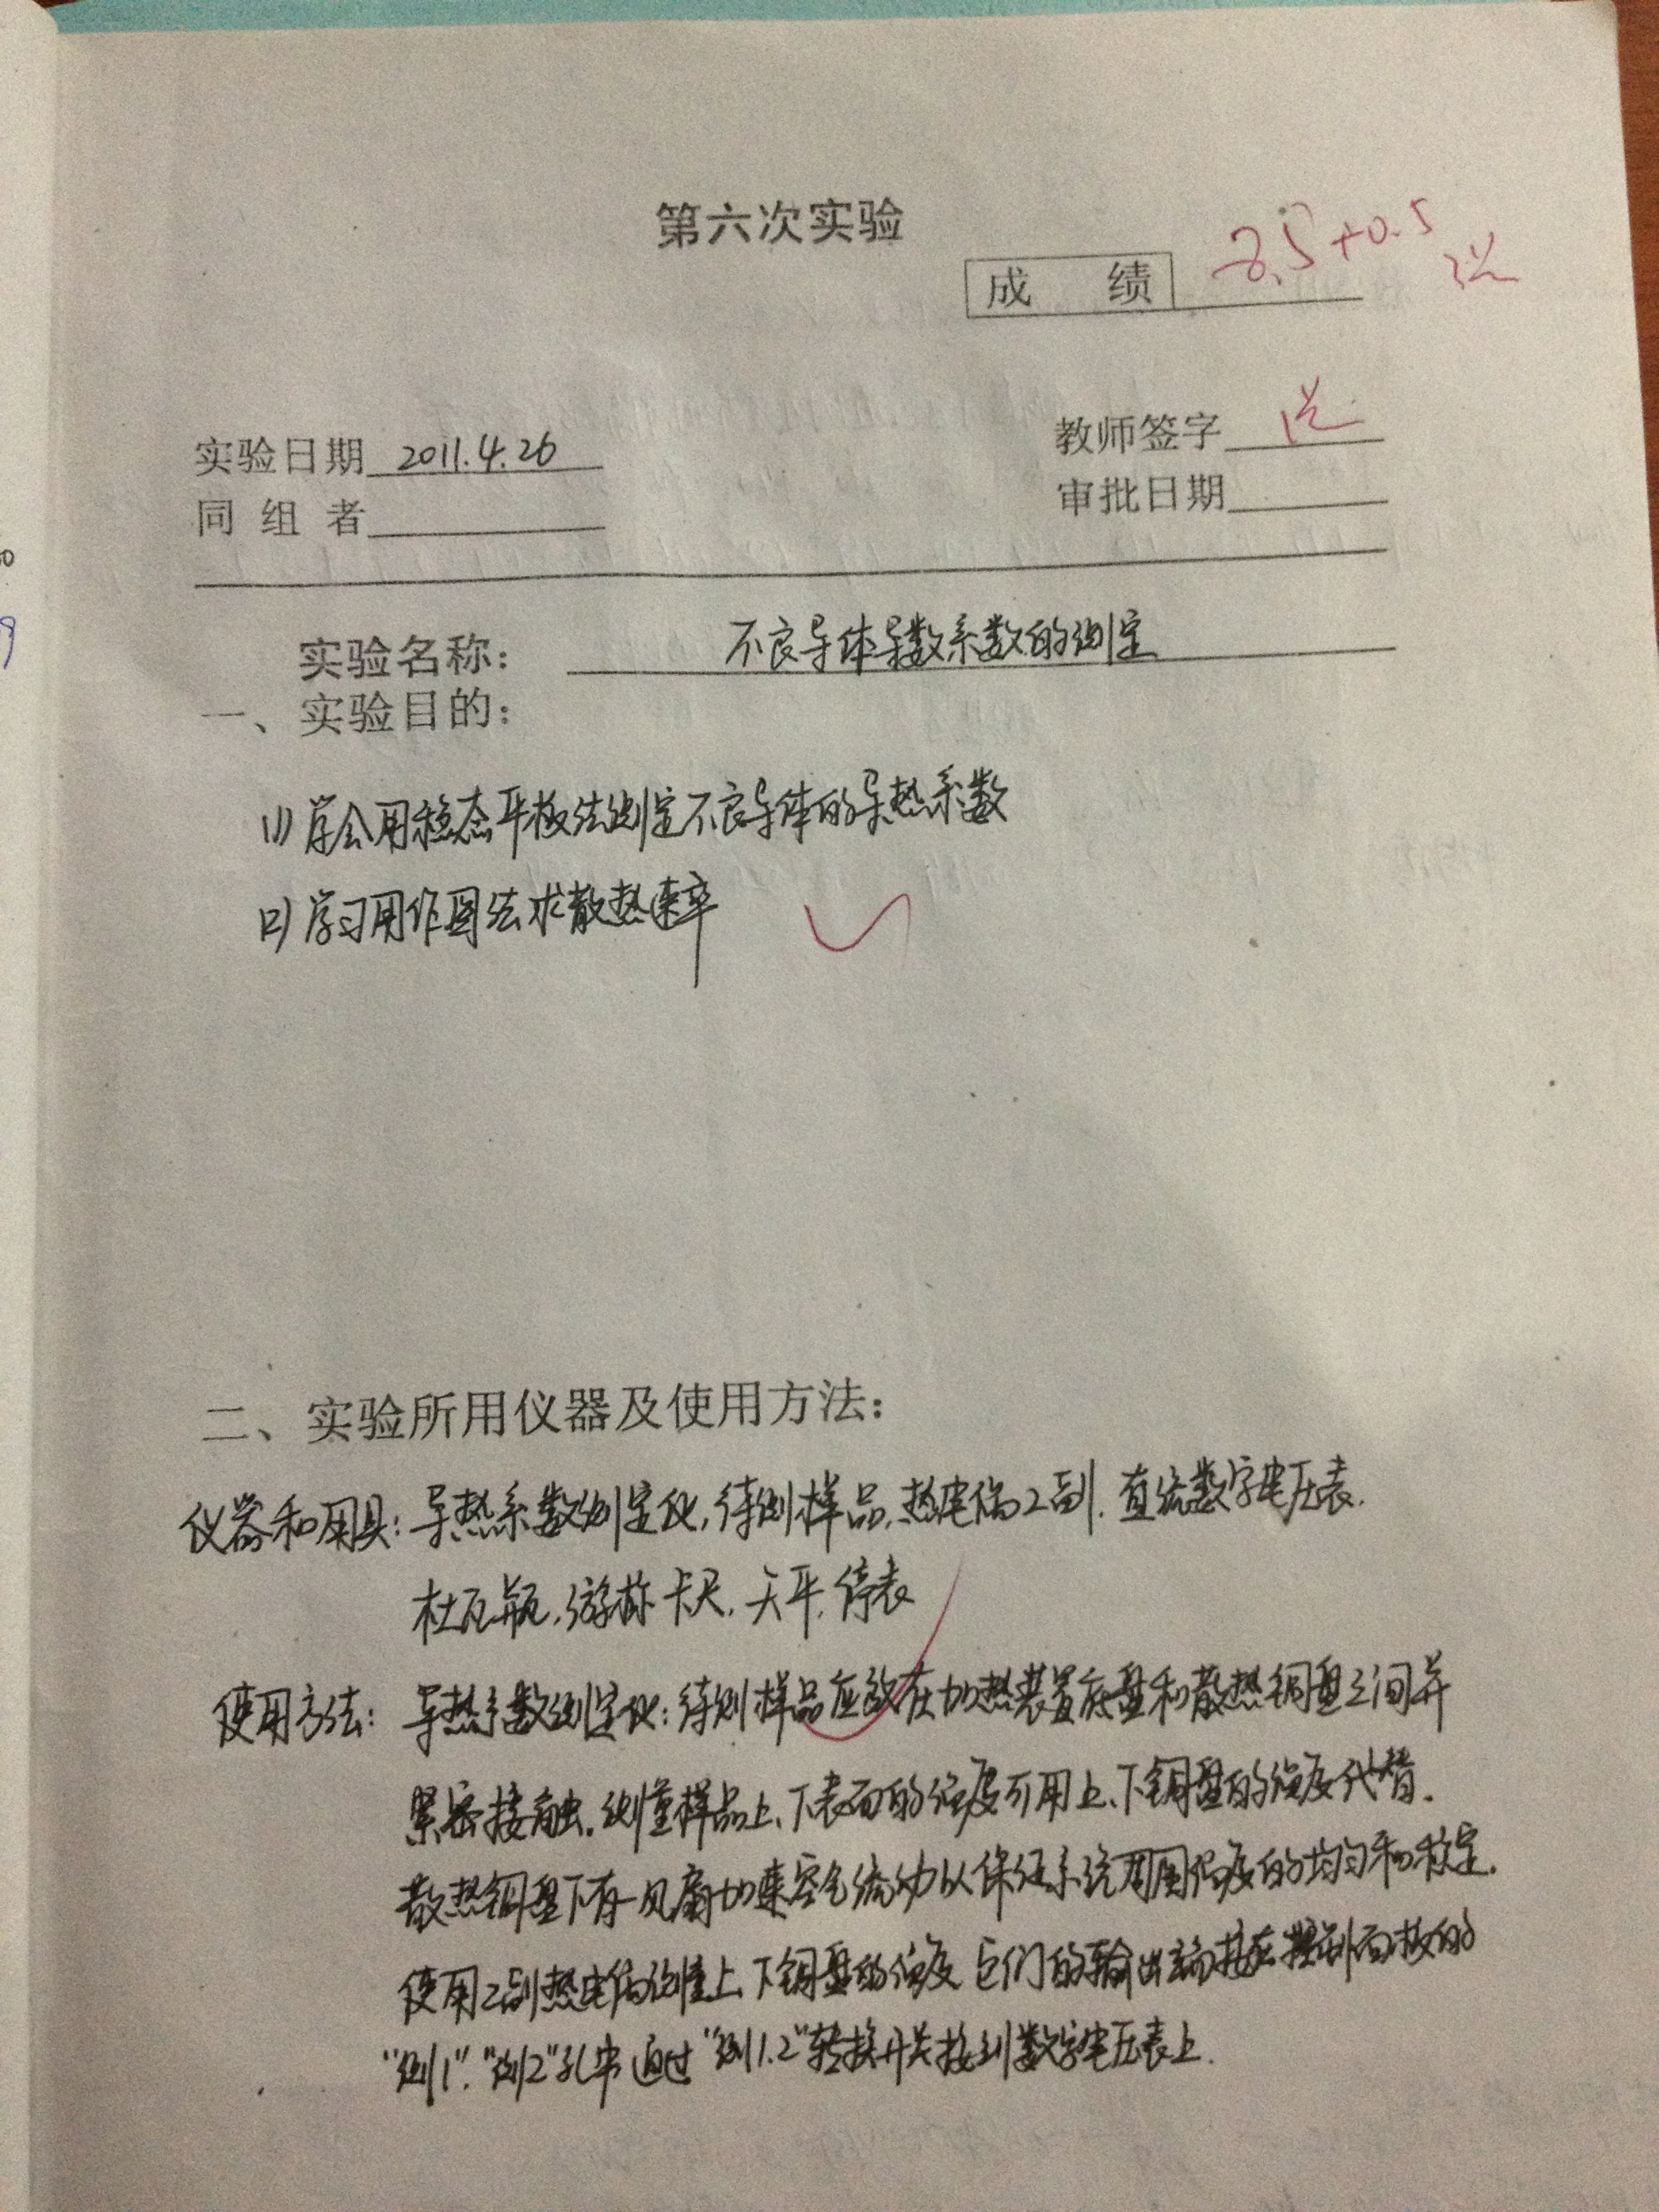 第六次实验
成 绩 8.5+0.5
实验日期 2011.4.26
教师签字
同 组 者
审批日期
实验名称: 不良导体导数系数的测定
一、实验目的:
(1) 学会用稳态平板法测定不良导体的导热系数
(2) 学习用作图法求散热速率
二、实验所用仪器及使用方法:
仪器和用具: 导热系数测定仪,待测样品,热电偶2副,直流数字电压表,
杜瓦瓶,游标卡尺,天平,停表
使用方法: 导热系数测定仪:待测样品应放在加热装置底盘和散热铜盘之间并
紧密接触。测量样品上、下表面的温度可用上、下铜盘的温度代替.
散热铜盘下有一风扇加速空气流动以保证系统周围温度的均匀和稳定.
使用2副热电偶测量上、下铜盘的温度 它们的输出端接在控制面板的
"测1"."测2"孔中 通过"测1.2"转换开关接到数字电压表上.